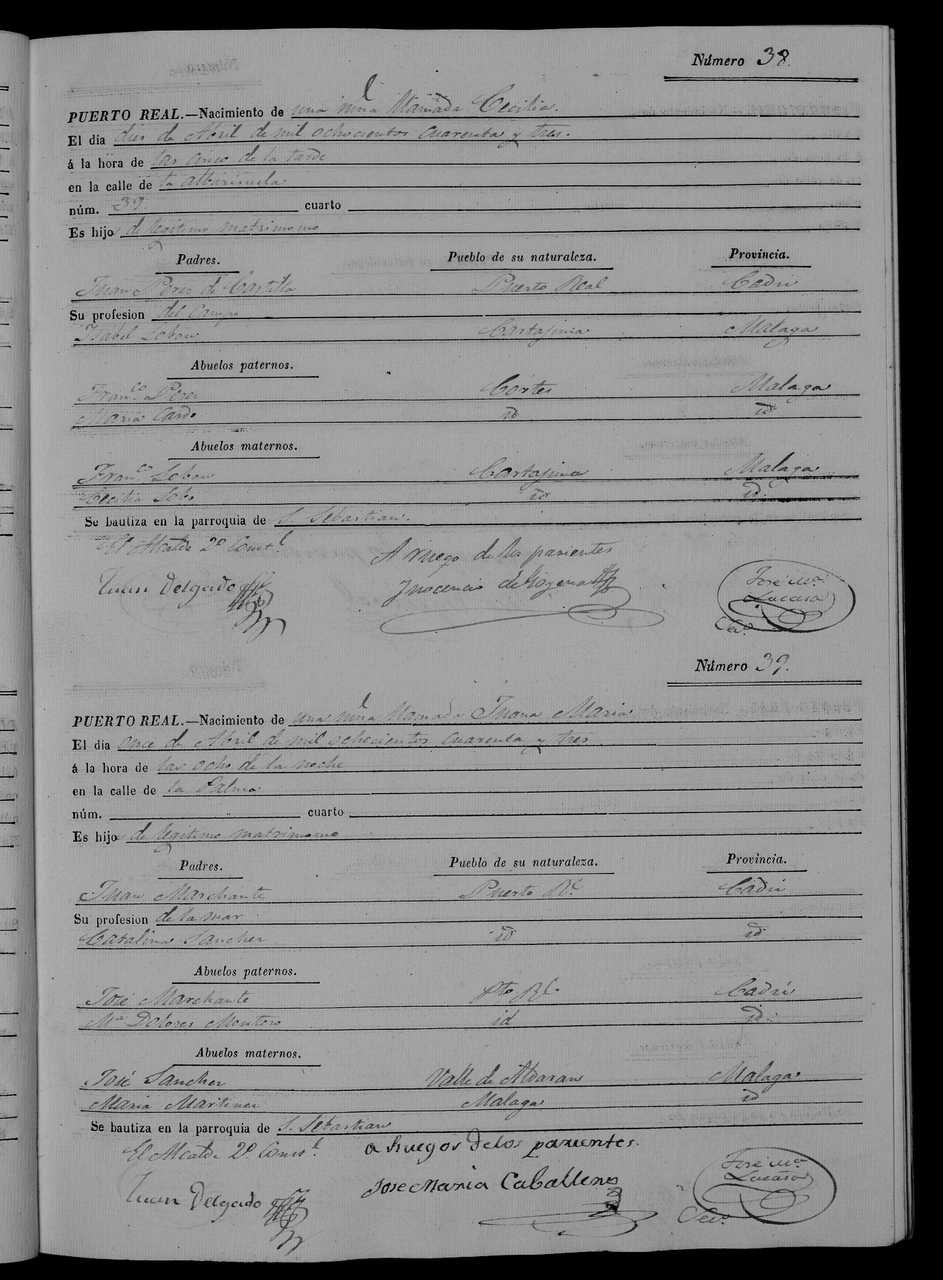 Número 38.
PUERTO REAL.—Nacimiento de una niña llamada Cecilia.
El dia diez de Abril de mil ochocientos cuarenta y tres.
á la hora de las cinco de la tarde
en la calle de la
núm. 39 cuarto
Es hijo de legitimo matrimonio
Padres. Pueblo de su naturaleza. Provincia.
Juan Perez de Castilla Puerto Real Cadiz
Su profesion del Campo
Isabel Lobon Cartajima Malaga
Abuelos paternos.
Fran.co Perez Cortes Malaga
Maria id id
Abuelos maternos.
Fran.co Lobon Cartajima Malaga
Cecilia id id.
Se bautiza en la parroquia de S. Sebastian.
El Alcalde 2º Const.l A ruego de los parientes
Juan Delgado Inocencio de José M.a
Lucaso
Sec.o
Número 39.
PUERTO REAL.—Nacimiento de una niña llamada Juana Maria
El dia once de Abril de mil ochocientos cuarenta y tres
á la hora de las ocho de la noche
en la calle de la Palma
núm. cuarto
Es hijo de legitimo matrimonio
Padres. Pueblo de su naturaleza. Provincia.
Juan Marchante Puerto R.l Cadiz
Su profesion de la mar
Catalina Sanchez id id
Abuelos paternos.
José Marchante Pto Rl. Cadiz
M.a Dolores Montero id id.
Abuelos maternos.
José Sanchez Valle de Abdaran Malaga
Maria Martinez Malaga id
Se bautiza en la parroquia de S. Sebastian
El Alcalde 2º Cons.l a Ruegos delos parientes.
Juan Delgado Jose Maria Caballero José M.a
Lucaso
Sec.o